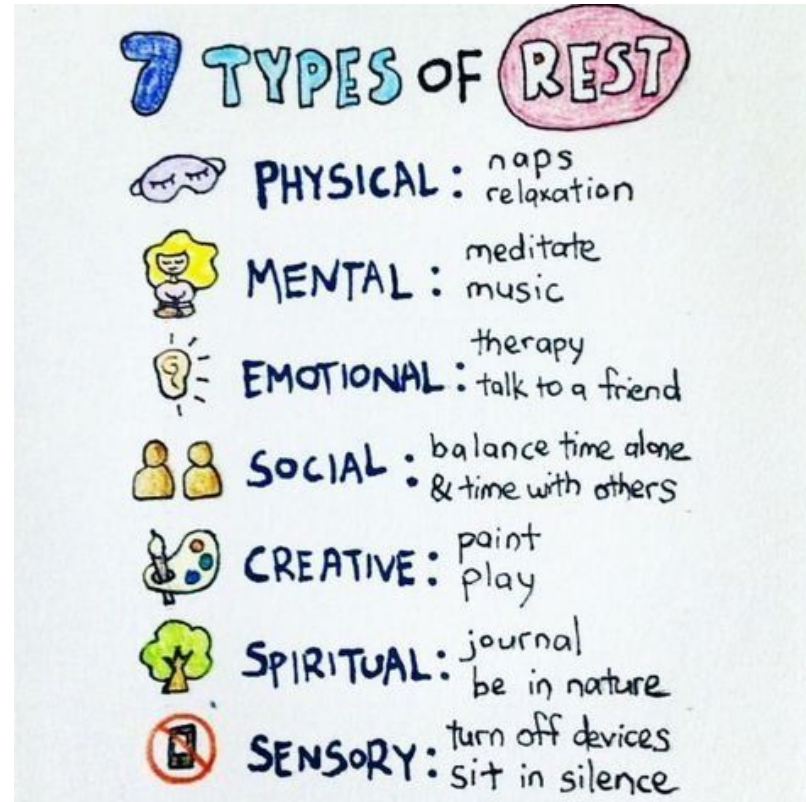 7 TYPES OF REST
PHYSICAL: naps
relaxation
MENTAL: meditate
music
EMOTIONAL: therapy
talk to a friend
SOCIAL: balance time alone
& time with others
CREATIVE: paint
play
SPIRITUAL: journal
be in nature
SENSORY: turn off devices
sit in silence